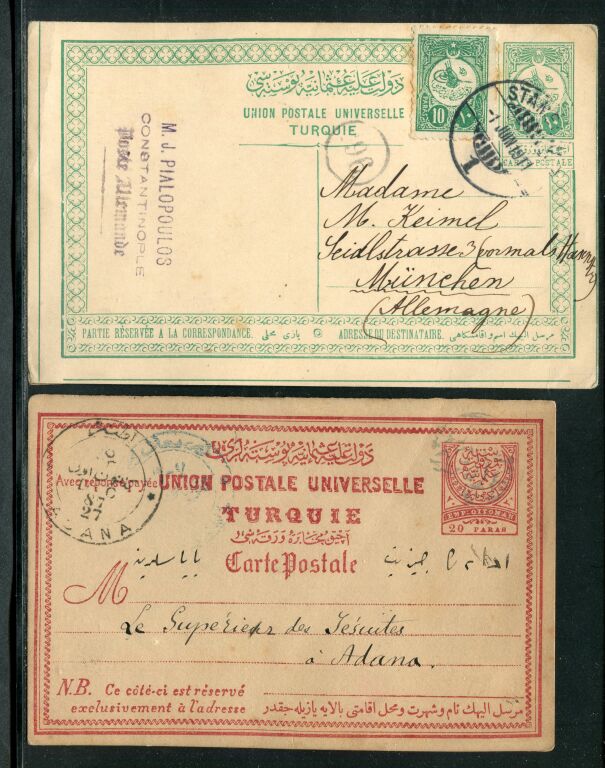 دولت عليه عثمانيه پوسته سى
UNION POSTALE UNIVERSELLE
TURQUIE
10
PARAS
STAMBOUL
1
CARTE POSTALE
M. J. PIALOPOULOS
CONSTANTINOPLE
Poste Allemande
Madame
M. Keimel
Seidlstrasse 3 (vormals
München
(Allemagne)
PARTIE RÉSERVÉE A LA CORRESPONDANCE.
يازى محلى
ADRESSE DU DESTINATAIRE.
مرسل اليهك اسم و اقامتكاهى
دولت عليه عثمانيه پوسته لرى
Avec réponse payée
UNION POSTALE UNIVERSELLE
TURQUIE
آچيق مخابره ورقه سى
Carte Postale
20 PARAS
ADANA
M
Le Supérieur des Jésuites
à Adana.
N.B. Ce côté-ci est réservé
exclusivement à l'adresse
مرسل اليهك نام و شهرت و محل اقامتى بالايه يازيله جقدر